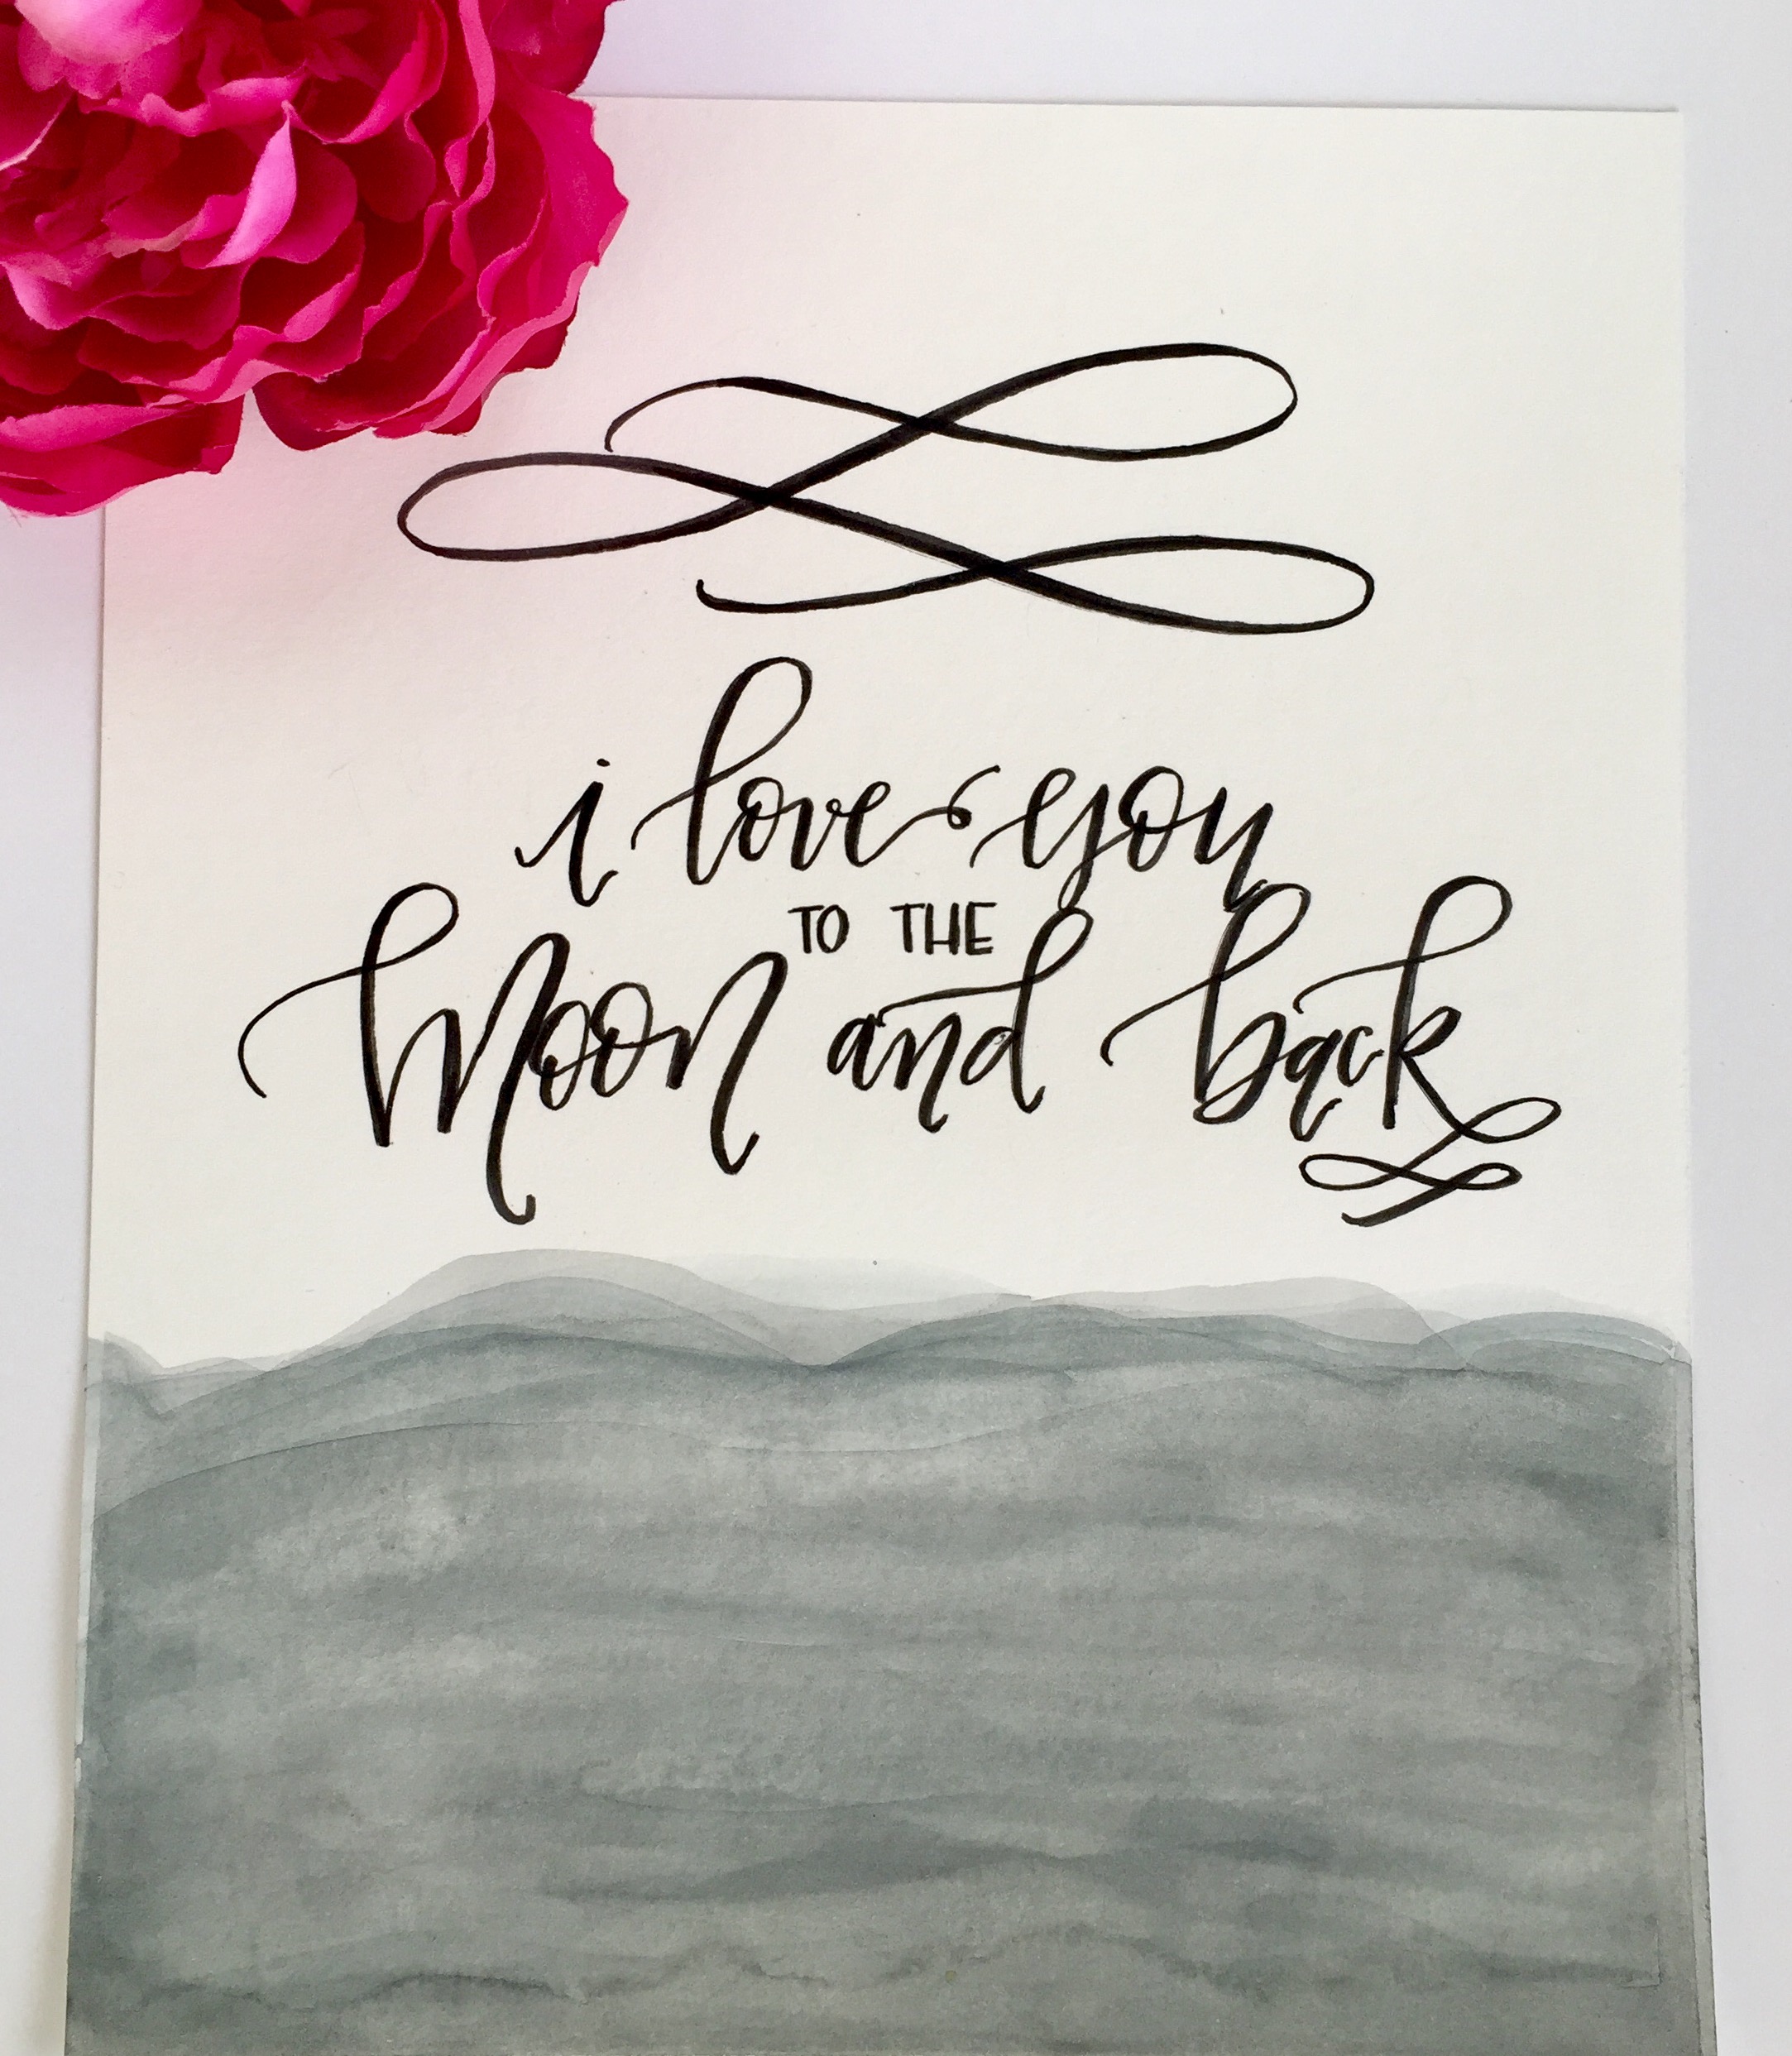 i love you
TO THE
Moon and back